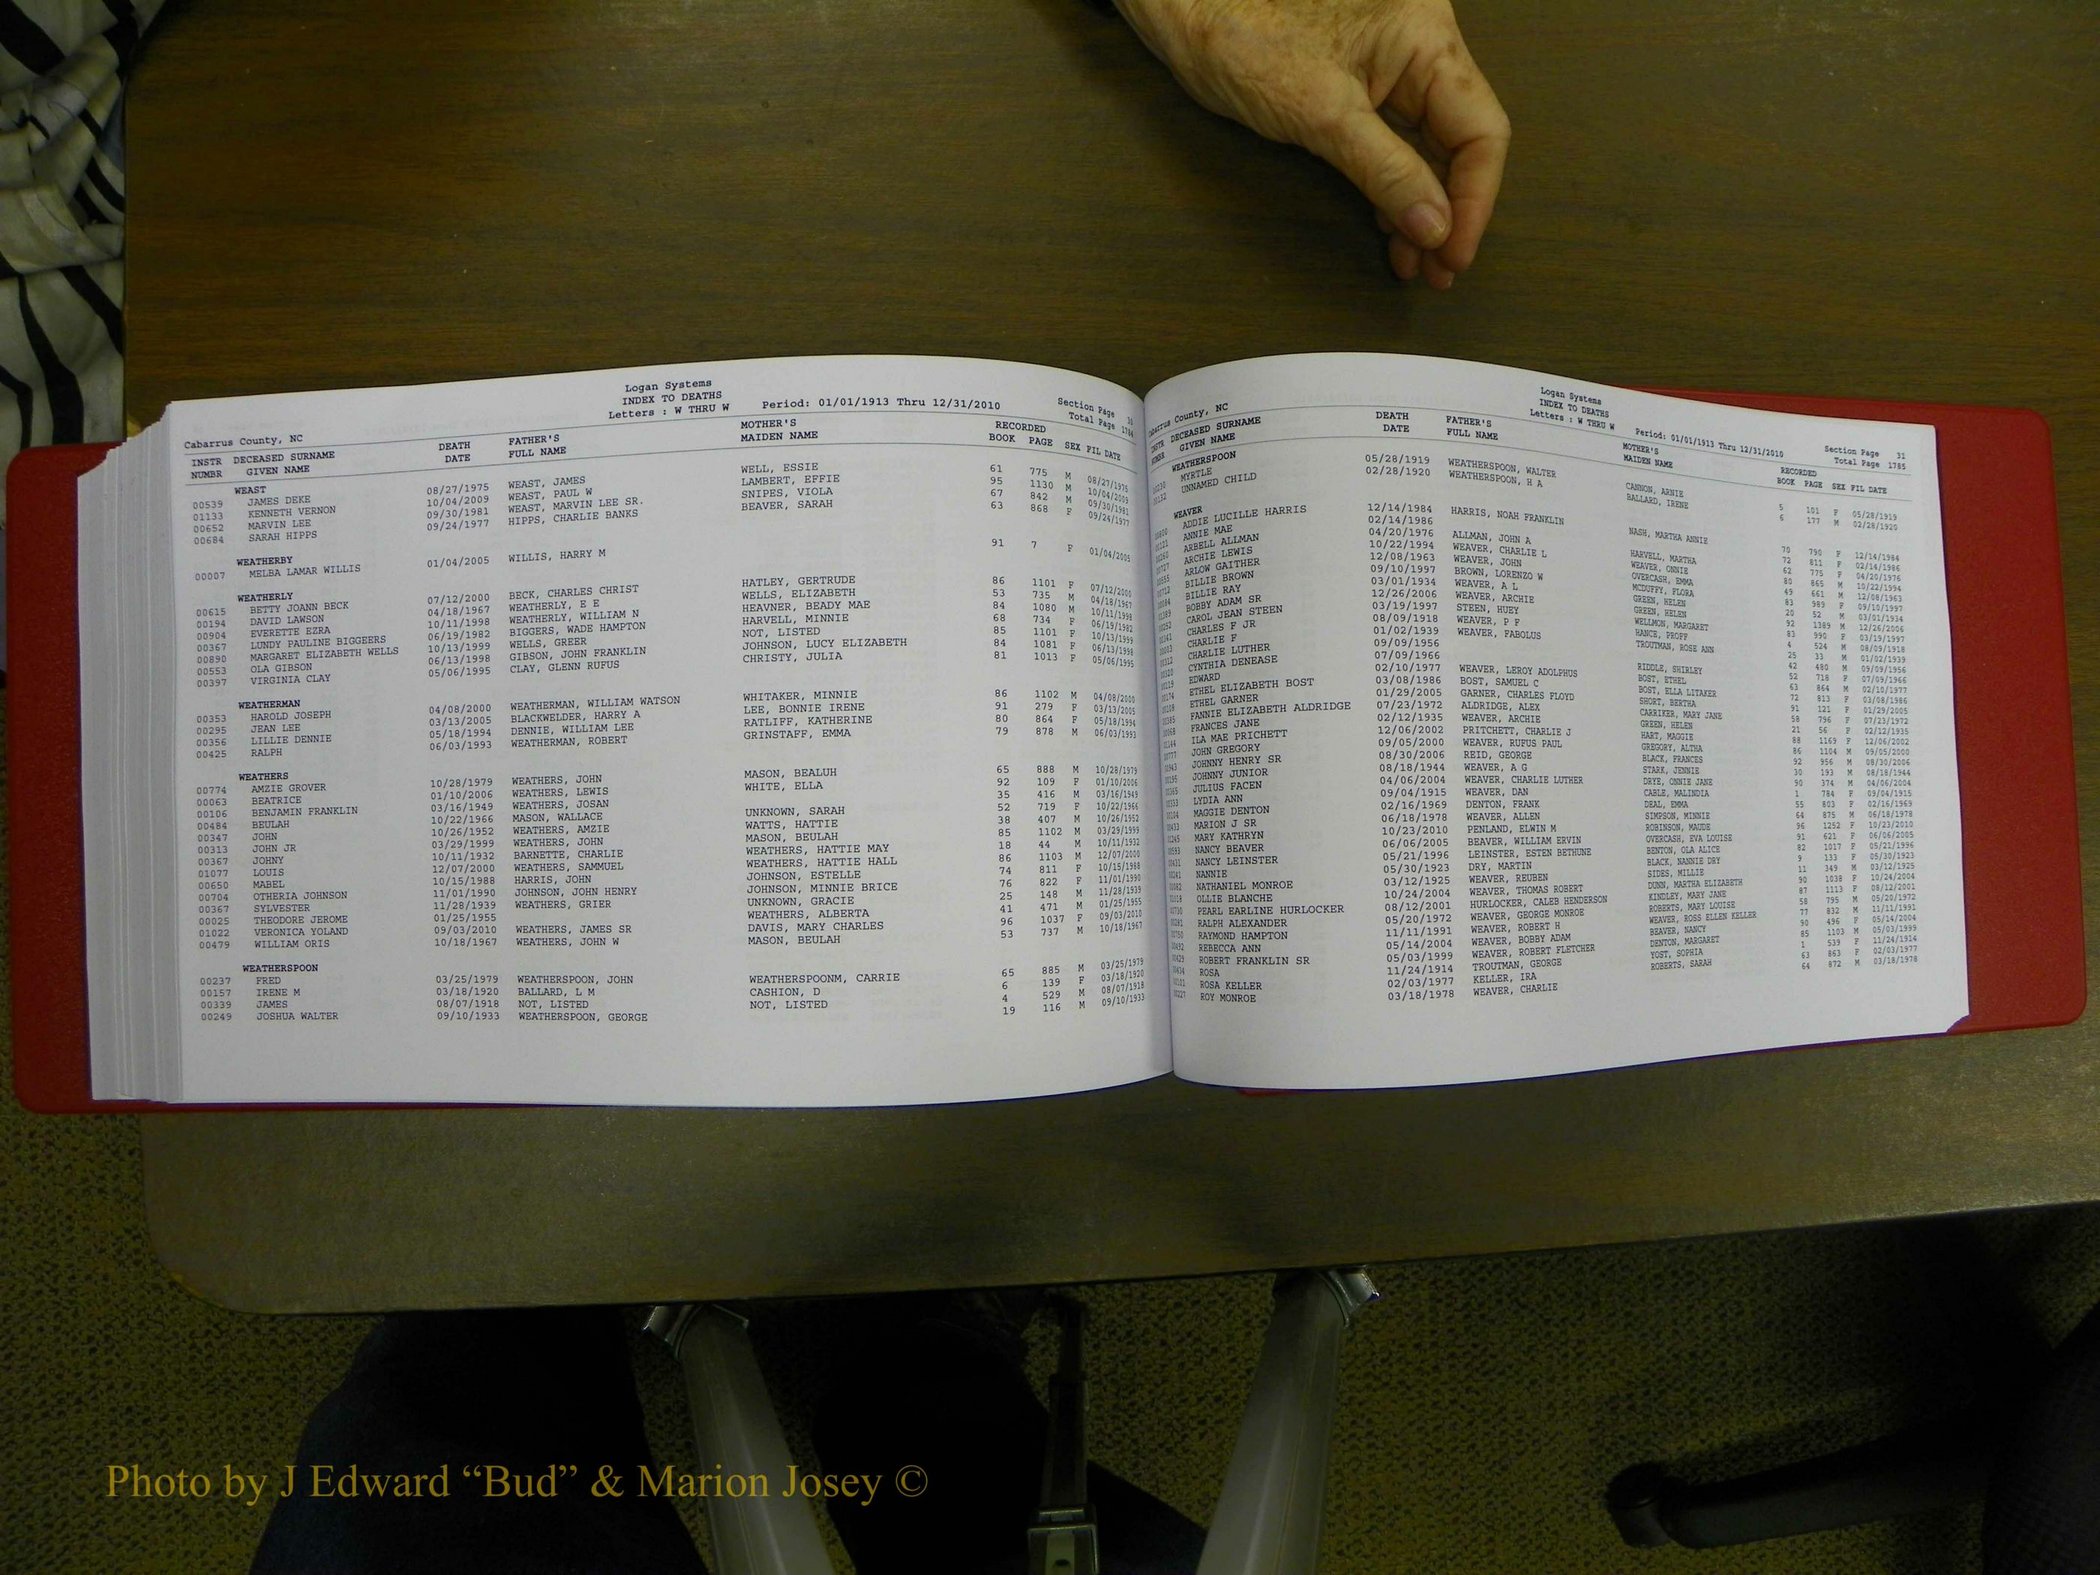 Logan Systems
INDEX TO DEATHS
Letters : W THRU W Period: 01/01/1913 Thru 12/31/2010
Section Page 30
Total Page 1784
Cabarrus County, NC
INSTR DECEASED SURNAME DEATH FATHER'S MOTHER'S RECORDED
NUMBR GIVEN NAME DATE FULL NAME MAIDEN NAME BOOK PAGE SEX FIL DATE
WEAST
00539 JAMES DEKE 08/27/1975 WEAST, JAMES WELL, ESSIE 61 775 M 08/27/1975
01133 KENNETH VERNON 10/04/2009 WEAST, PAUL W LAMBERT, EFFIE 95 1130 M 10/04/2009
00652 MARVIN LEE 09/30/1981 WEAST, MARVIN LEE SR. SNIPES, VIOLA 67 842 M 09/30/1981
00684 SARAH HIPPS 09/24/1977 HIPPS, CHARLIE BANKS BEAVER, SARAH 63 868 F 09/24/1977
WEATHERBY
00007 MELBA LAMAR WILLIS 01/04/2005 WILLIS, HARRY M 91 7 F 01/04/2005
WEATHERLY
00615 BETTY JOANN BECK 07/12/2000 BECK, CHARLES CHRIST HATLEY, GERTRUDE 86 1101 F 07/12/2000
00194 DAVID LAWSON 04/18/1967 WEATHERLY, E E WELLS, ELIZABETH 53 735 M 04/18/1967
00904 EVERETTE EZRA 10/11/1998 WEATHERLY, WILLIAM N HEAVNER, BEADY MAE 84 1080 M 10/11/1998
00367 LUNDY PAULINE BIGGEERS 06/19/1982 BIGGERS, WADE HAMPTON HARVELL, MINNIE 68 734 F 06/19/1982
00890 MARGARET ELIZABETH WELLS 10/13/1999 WELLS, GREER NOT, LISTED 85 1101 F 10/13/1999
00553 OLA GIBSON 06/13/1998 GIBSON, JOHN FRANKLIN JOHNSON, LUCY ELIZABETH 84 1081 F 06/13/1998
00397 VIRGINIA CLAY 05/06/1995 CLAY, GLENN RUFUS CHRISTY, JULIA 81 1013 F 05/06/1995
WEATHERMAN
00353 HAROLD JOSEPH 04/08/2000 WEATHERMAN, WILLIAM WATSON WHITAKER, MINNIE 86 1102 M 04/08/2000
00295 JEAN LEE 03/13/2005 BLACKWELDER, HARRY A LEE, BONNIE IRENE 91 279 F 03/13/2005
00356 LILLIE DENNIE 05/18/1994 DENNIE, WILLIAM LEE RATLIFF, KATHERINE 80 864 F 05/18/1994
00425 RALPH 06/03/1993 WEATHERMAN, ROBERT GRINSTAFF, EMMA 79 878 M 06/03/1993
WEATHERS
00774 AMZIE GROVER 10/28/1979 WEATHERS, JOHN MASON, BEALUH 65 888 M 10/28/1979
00063 BEATRICE 01/10/2006 WEATHERS, LEWIS WHITE, ELLA 92 109 F 01/10/2006
00106 BENJAMIN FRANKLIN 03/16/1949 WEATHERS, JOSAN 35 416 M 03/16/1949
00484 BEULAH 10/22/1966 MASON, WALLACE UNKNOWN, SARAH 52 719 F 10/22/1966
00347 JOHN 10/26/1952 WEATHERS, AMZIE WATTS, HATTIE 38 407 M 10/26/1952
00313 JOHN JR 03/29/1999 WEATHERS, JOHN MASON, BEULAH 85 1102 M 03/29/1999
00367 JOHNY 10/11/1932 BARNETTE, CHARLIE WEATHERS, HATTIE MAY 18 44 M 10/11/1932
01077 LOUIS 12/07/2000 WEATHERS, SAMMUEL WEATHERS, HATTIE HALL 86 1103 M 12/07/2000
00650 MABEL 10/15/1988 HARRIS, JOHN JOHNSON, ESTELLE 74 811 F 10/15/1988
00704 OTHERIA JOHNSON 11/01/1990 JOHNSON, JOHN HENRY JOHNSON, MINNIE BRICE 76 822 F 11/01/1990
00367 SYLVESTER 11/28/1939 WEATHERS, GRIER UNKNOWN, GRACIE 25 148 M 11/28/1939
00025 THEODORE JEROME 01/25/1955 WEATHERS, ALBERTA 41 471 M 01/25/1955
01022 VERONICA YOLAND 09/03/2010 WEATHERS, JAMES SR DAVIS, MARY CHARLES 96 1037 F 09/03/2010
00479 WILLIAM ORIS 10/18/1967 WEATHERS, JOHN W MASON, BEULAH 53 737 M 10/18/1967
WEATHERSPOON
00237 FRED 03/25/1979 WEATHERSPOON, JOHN WEATHERSPOONM, CARRIE 65 885 M 03/25/1979
00157 IRENE M 03/18/1920 BALLARD, L M CASHION, D 6 139 F 03/18/1920
00339 JAMES 08/07/1918 NOT, LISTED NOT, LISTED 4 529 M 08/07/1918
00249 JOSHUA WALTER 09/10/1933 WEATHERSPOON, GEORGE 19 116 M 09/10/1933
Logan Systems
INDEX TO DEATHS
Letters : W THRU W Period: 01/01/1913 Thru 12/31/2010
Section Page 31
Total Page 1785
Cabarrus County, NC
INSTR DECEASED SURNAME DEATH FATHER'S MOTHER'S RECORDED
NUMBR GIVEN NAME DATE FULL NAME MAIDEN NAME BOOK PAGE SEX FIL DATE
WEATHERSPOON
00230 MYRTLE 05/28/1919 WEATHERSPOON, WALTER CANNON, ARNIE 5 101 F 05/28/1919
00132 UNNAMED CHILD 02/28/1920 WEATHERSPOON, H A BALLARD, IRENE 6 177 M 02/28/1920
WEAVER
ADDIE LUCILLE HARRIS 12/14/1984 HARRIS, NOAH FRANKLIN NASH, MARTHA ANNIE 70 790 F 12/14/1984
ANNIE MAE 02/14/1986 72 811 F 02/14/1986
ARBELL ALLMAN 04/20/1976 ALLMAN, JOHN A HARVELL, MARTHA 62 775 F 04/20/1976
ARCHIE LEWIS 10/22/1994 WEAVER, CHARLIE L WEAVER, ONNIE 80 865 M 10/22/1994
ARLOW GAITHER 12/08/1963 WEAVER, JOHN OVERCASH, EMMA 49 661 M 12/08/1963
BILLIE BROWN 09/10/1997 BROWN, LORENZO W MCDUFFY, FLORA 83 989 F 09/10/1997
BILLIE RAY 03/01/1934 WEAVER, A L GREEN, HELEN 20 52 M 03/01/1934
BOBBY ADAM SR 12/26/2006 WEAVER, ARCHIE GREEN, HELEN 92 1389 M 12/26/2006
CAROL JEAN STEEN 03/19/1997 STEEN, HUEY WELLMON, MARGARET 83 990 F 03/19/1997
CHARLES F JR 08/09/1918 WEAVER, P F HANCE, PROPF 4 524 M 08/09/1918
CHARLIE F 01/02/1939 WEAVER, FABOLUS TROUTMAN, ROSE ANN 25 33 M 01/02/1939
CHARLIE LUTHER 09/09/1956 42 480 M 09/09/1956
CYNTHIA DENEASE 07/09/1966 52 718 F 07/09/1966
EDWARD 02/10/1977 WEAVER, LEROY ADOLPHUS RIDDLE, SHIRLEY 63 864 M 02/10/1977
ETHEL ELIZABETH BOST 03/08/1986 BOST, SAMUEL C BOST, ETHEL 72 813 F 03/08/1986
ETHEL GARNER 01/29/2005 GARNER, CHARLES FLOYD BOST, ELLA LITAKER 91 121 F 01/29/2005
FANNIE ELIZABETH ALDRIDGE 07/23/1972 ALDRIDGE, ALEX SHORT, BERTHA 58 796 F 07/23/1972
FRANCES JANE 02/12/1935 WEAVER, ARCHIE CARRIKER, MARY JANE 21 56 F 02/12/1935
ILA MAE PRICHETT 12/06/2002 PRITCHETT, CHARLIE J GREEN, HELEN 88 1169 F 12/06/2002
JOHN GREGORY 09/05/2000 WEAVER, RUFUS PAUL HART, MAGGIE 86 1104 M 09/05/2000
JOHNNY HENRY SR 08/30/2006 REID, GEORGE GREGORY, ALTHA 92 956 M 08/30/2006
JOHNNY JUNIOR 08/18/1944 WEAVER, A G BLACK, FRANCES 30 193 M 08/18/1944
JULIUS FACEN 04/06/2004 WEAVER, CHARLIE LUTHER STARK, JENNIE 90 374 M 04/06/2004
LYDIA ANN 09/04/1915 WEAVER, DAN DRYE, ONNIE JANE 1 784 F 09/04/1915
MAGGIE DENTON 02/16/1969 DENTON, FRANK CABLE, MALINDIA 55 803 F 02/16/1969
MARION J SR 06/18/1978 WEAVER, ALLEN DEAL, EMMA 64 875 M 06/18/1978
MARY KATHRYN 10/23/2010 PENLAND, ELWIN M SIMPSON, MINNIE 96 1252 F 10/23/2010
NANCY BEAVER 06/06/2005 BEAVER, WILLIAM ERVIN ROBINSON, MAUDE 91 621 F 06/06/2005
NANCY LEINSTER 05/21/1996 LEINSTER, ESTEN BETHUNE OVERCASH, EVA LOUISE 82 1017 F 05/21/1996
NANNIE 05/30/1923 DRY, MARTIN BENTON, OLA ALICE 9 133 F 05/30/1923
NATHANIEL MONROE 03/12/1925 WEAVER, REUBEN BLACK, NANNIE DRY 11 349 M 03/12/1925
OLLIE BLANCHE 10/24/2004 WEAVER, THOMAS ROBERT SIDES, MILLIE 90 1038 F 10/24/2004
PEARL EARLINE HURLOCKER 08/12/2001 HURLOCKER, CALEB HENDERSON DUNN, MARTHA ELIZABETH 87 1113 F 08/12/2001
RALPH ALEXANDER 05/20/1972 WEAVER, GEORGE MONROE KINDLEY, MARY JANE 58 795 M 05/20/1972
RAYMOND HAMPTON 11/11/1991 WEAVER, ROBERT H ROBERTS, MARY LOUISE 77 832 M 11/11/1991
REBECCA ANN 05/14/2004 WEAVER, BOBBY ADAM WEAVER, ROSS ELLEN KELLER 90 496 F 05/14/2004
ROBERT FRANKLIN SR 05/03/1999 WEAVER, ROBERT FLETCHER BEAVER, NANCY 85 1103 M 05/03/1999
ROSA 11/24/1914 TROUTMAN, GEORGE DENTON, MARGARET 1 539 F 11/24/1914
ROSA KELLER 02/03/1977 KELLER, IRA YOST, SOPHIA 63 863 F 02/03/1977
ROY MONROE 03/18/1978 WEAVER, CHARLIE ROBERTS, SARAH 64 872 M 03/18/1978
Photo by J Edward “Bud” & Marion Josey ©